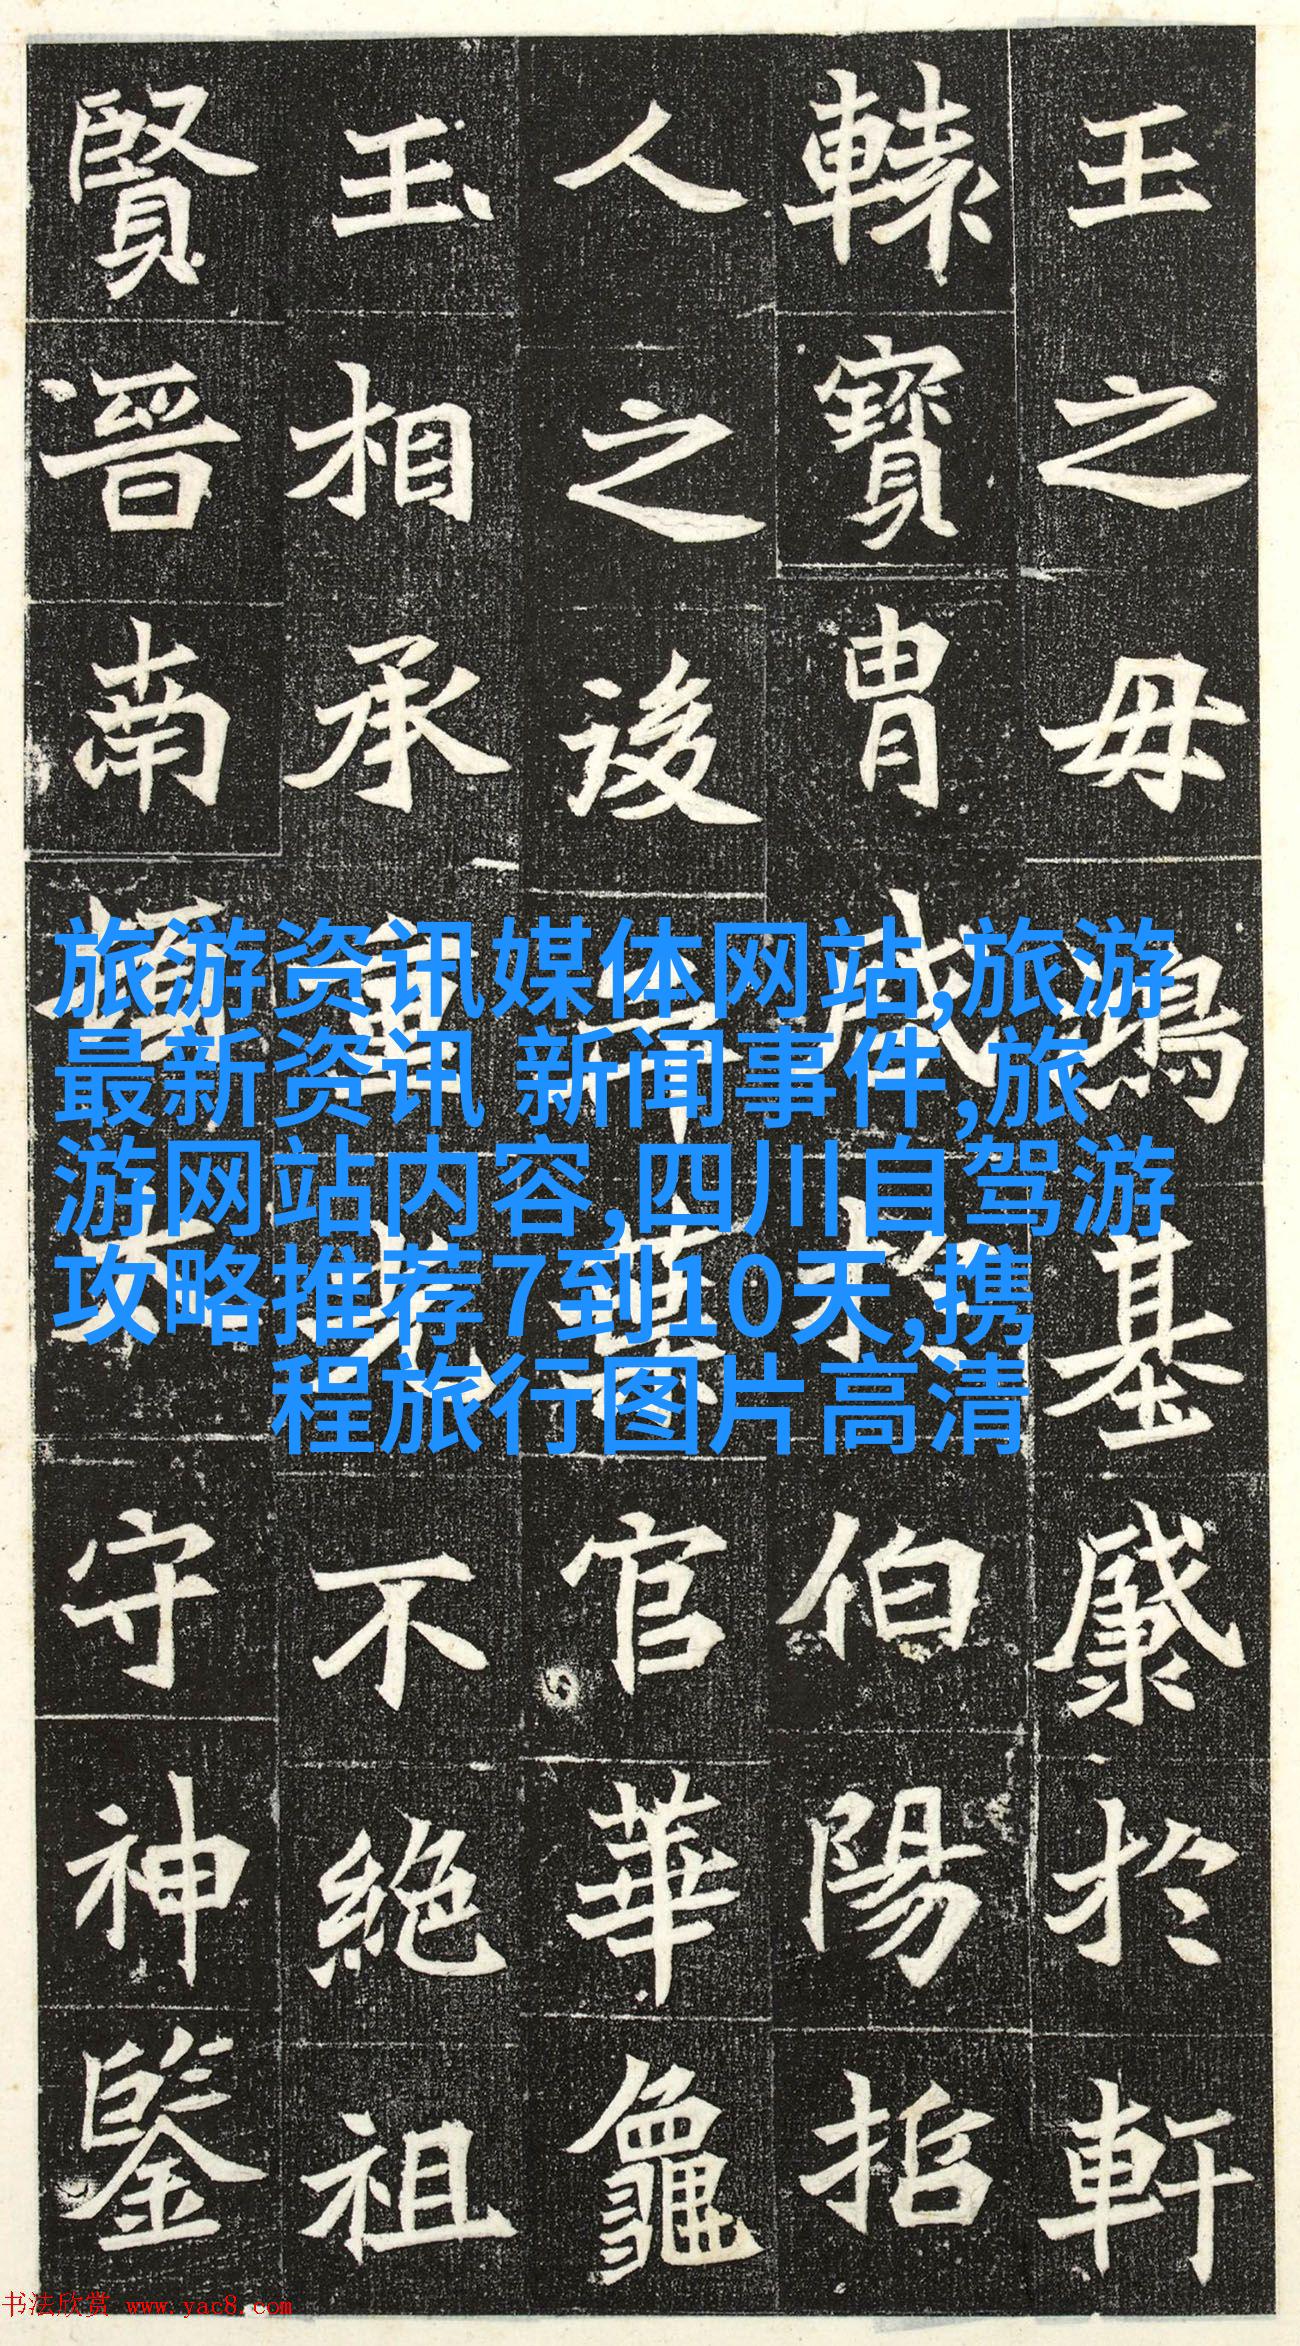 王之毋鴻基於軒
轅寶胄於伯陽招
人之後官華龜
玉相承重光不絶祖
賢晉南頓太守神鑒
旅游资讯媒体网站,旅游
最新资讯 新闻事件,旅
游网站内容,四川自驾游
攻略推荐7到10天,携
程旅行图片高清
书法欣赏 www.yac8.com